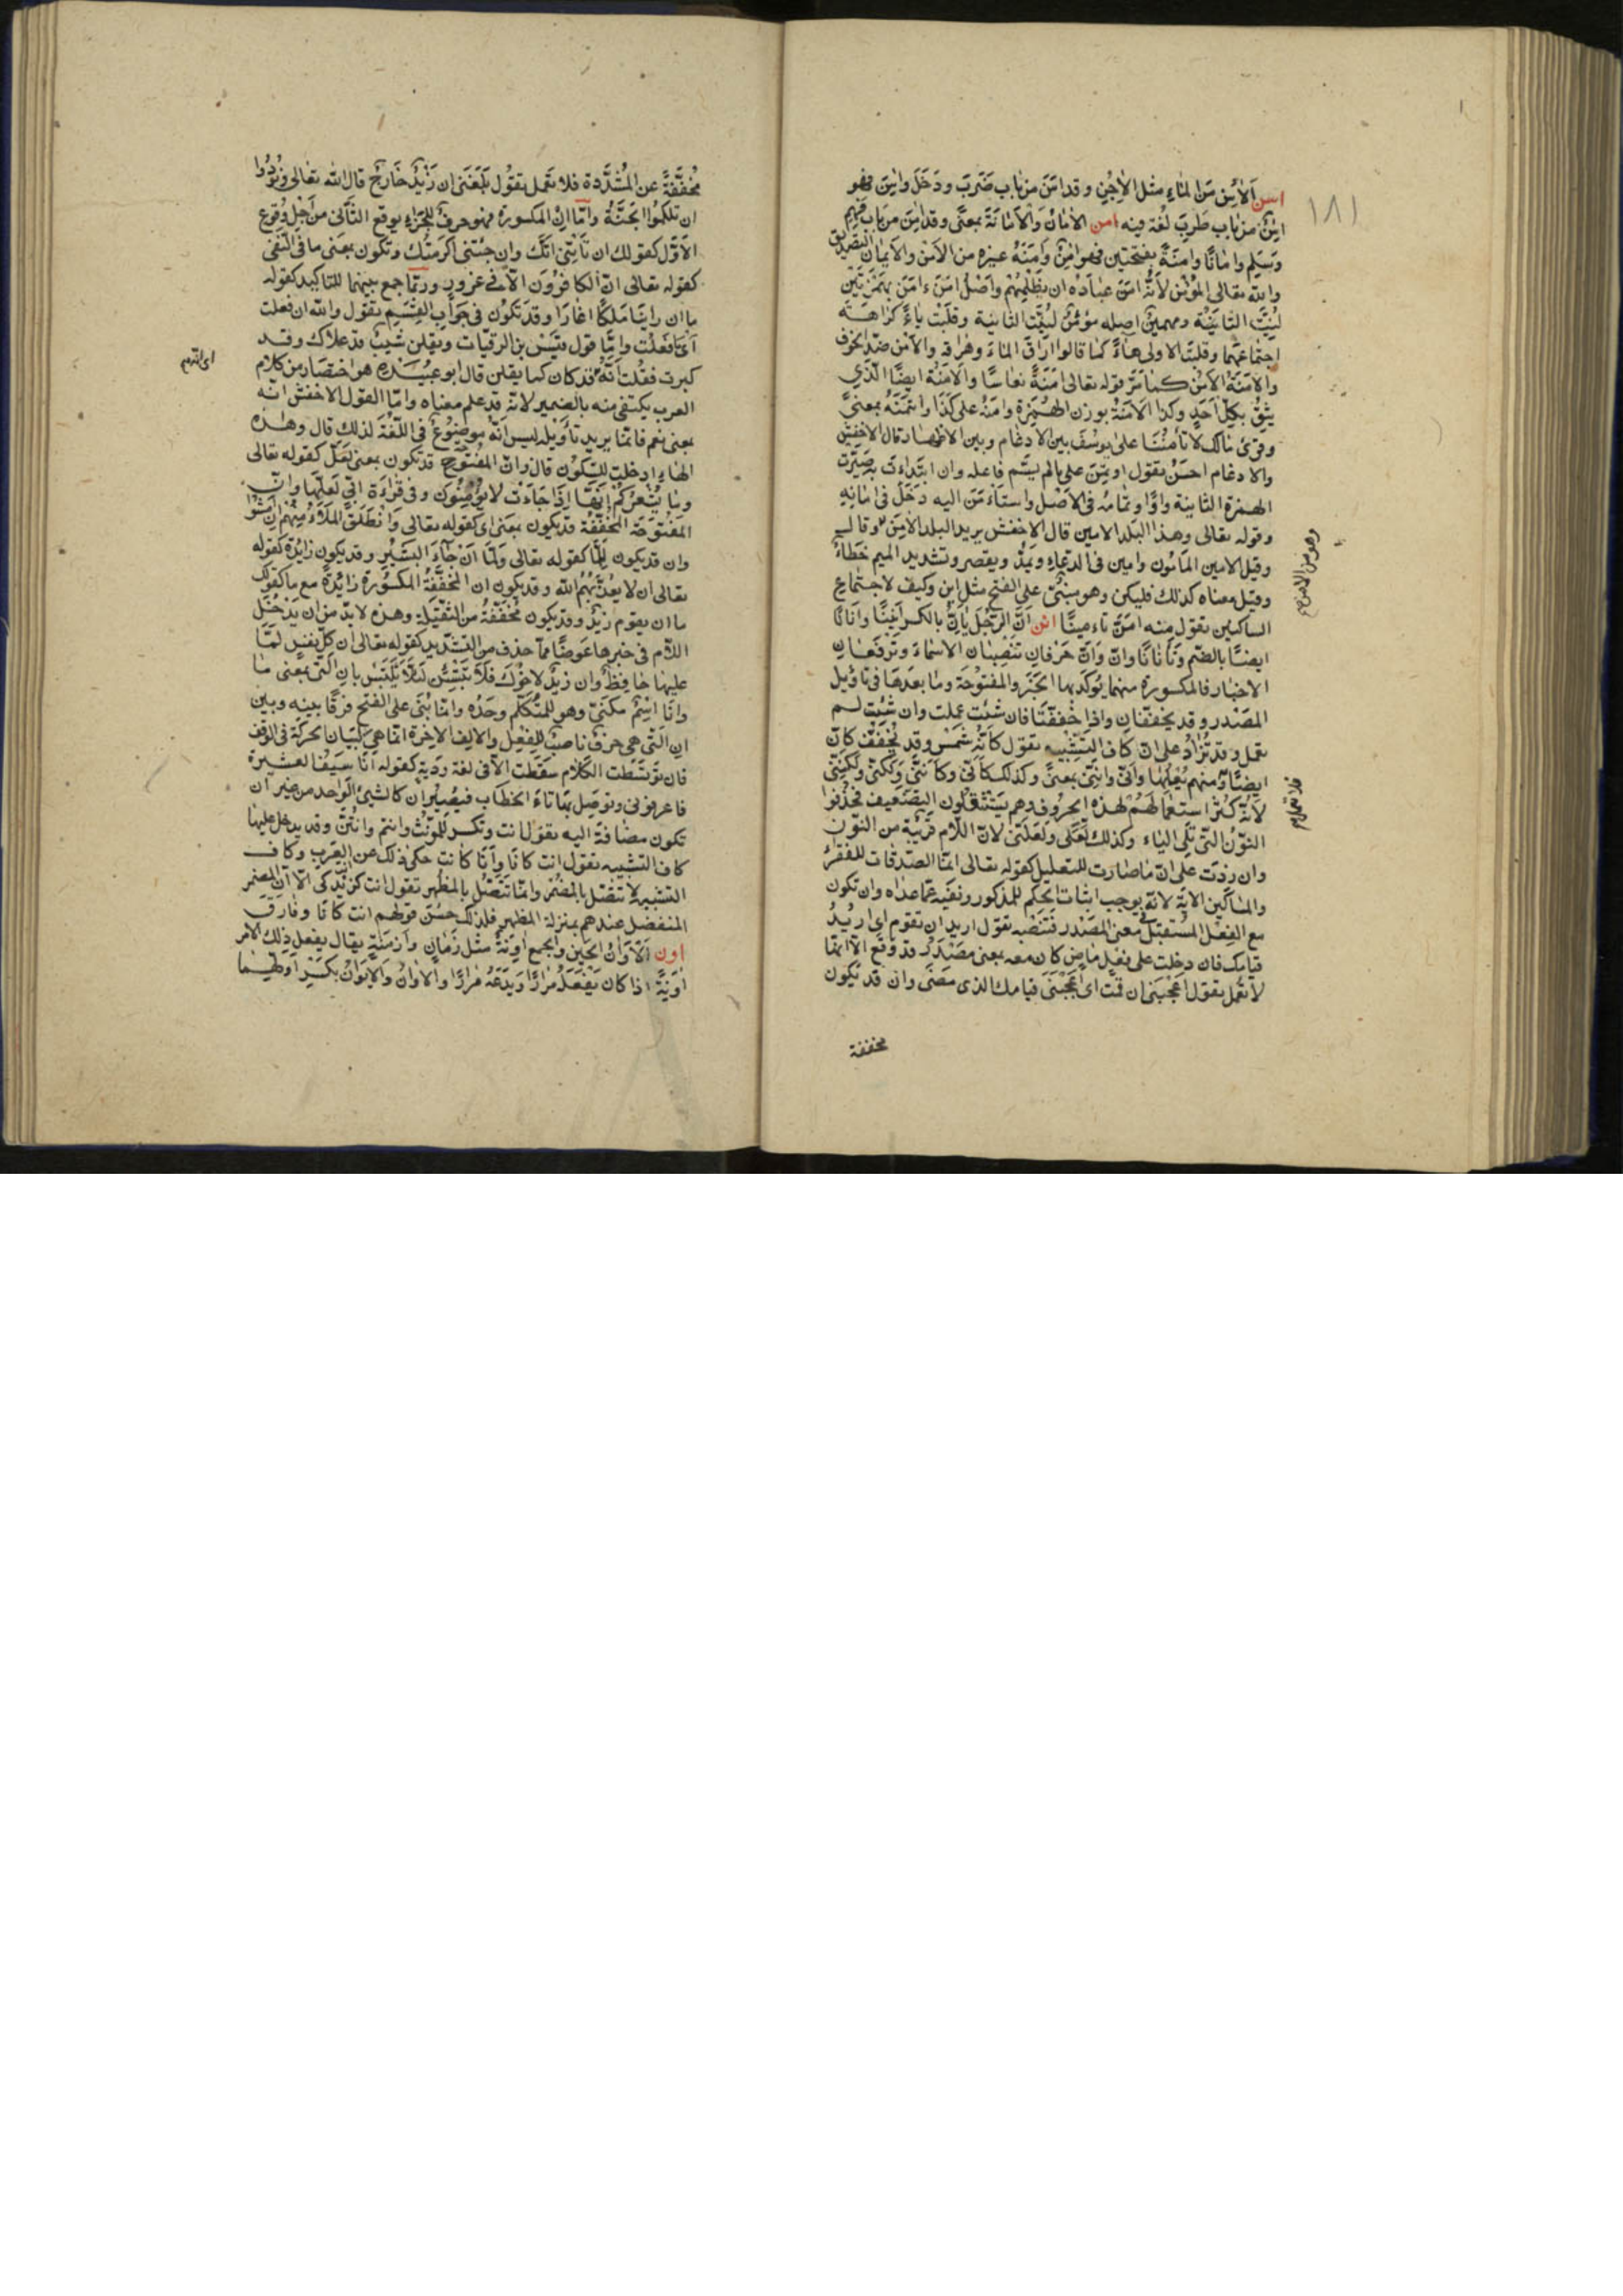 ١٨١
اسن الآسِن مِنَ الماءِ مثل الآجِن وقد اسَنَ من باب ضَرَبَ ودَخَلَ واسِنَ فهو
اسِنٌ من باب طَرِبَ لُغة فيه امن الأمانُ والأمانَةُ بمعنًى وقد امِنَ من باب فَهِمَ
وسَلِمَ وامانًا وامَنَةً بفتحتين فهو امِنٌ وآمَنَهُ غيره من الأمْنِ والأيمان التصديق
والله تعالى المؤمن لأنّه امَنَ عباده ان يظلمهم وأصْلُ امَنَ ءامَنَ بهمزتين
لُيِّنَت الثّانِيَة ومهيمن اصله مؤمن لُيِّنَت الثانية وقلبت ياءً كراهة
اجتماعهما وقلبت الاولى هاءً كما قالوا اراقَ الماءَ وهراقه والأمْن ضدّ الخوف
والأمَنَةُ الأمْنُ كما مَرَّ قوله تعالى امَنَةً نعاسًا والأمَنَة ايضًا الّذي
يَثِقُ بكلّ احَدٍ وكذا الأمَنَةُ بوزن الهُمَزة وامَنَهُ على كذا وائتمَنَهُ بمعنىً
وقرئ مالك لا تأمنّا على يوسُفَ بين الادغام وبين الاظهار قال الاخفش
والادغام احسَنُ تقول اوتمن على مالم يسَمَّ فاعله وان ابتدأت به صَيَّرت
الهمزة الثانية واوًا وتمامُه في الأصْل واستأمَنَ اليه دَخَلَ في امانِهِ
وقوله تعالى وهذا البَلَد الامين قال الاخفش يريد البلد الآمِنَ وقال
وقيل الامين المأمُون وامين في الدّعاءِ يُمَدُّ ويقصر وتشديد الميم خَطأٌ
وقيل معناه كذلك فليكن وهو مبنىٌّ على الفتح مثل اين وكيف لاجتماع
الساكنين تقول منه امَّنَ تاءمينًا انن انَّ الرَّجُل يَأِنُّ بالكسر أنِينًا وانانًا
ايضًا بالضّم وتأنانًا وانّ وَانَّ حَرْفانِ تنصِبان الاسماءَ وتَرْفَعَان
الاخبار فالمكسورة منهما يُوَكَّد بها الخَبَر والمفتوحَة وما بعدها في تأويل
المَصْدر وقد يخففّان واذا خُفِفّتَا فان شئت عملت وان شئت لم
تعمل وقد تُزادُ على انّ كاف التشبيه تقول كأنّه شمس وقد تُخَفَّفُ كأنّ
ايضًا ومنهم يُعْمِلُها وانّى وانّنى بمعنىً وكذلك كأنّى وكأنّنى ولَكنّى ولَكنّنى
لأنّه كَثُر استعمالُهُم لهذه الحُرُوف وهم يَسْتثقلون التضعيف فحذفوا
النّونُ التى تلى الياءَ وكذلك لَعَلّى ولَعَلَّنى لانّ اللّام قريبَة من النّون
وان زدْتَ على انّ ما صَارت للتعليل كقوله تعالى انّما الصّدقات للفقراءِ
والمساكين الاية لانّه يوجب اثبات الحكم للمذكور ونفيَه عمّا عداه وان تكون
مع الفِعْل المُسْتقبَل فى معنى المَصْدر فتنصبه تقول اريد ان تقوم اى اريدُ
قيامك فان دخلت على فعل ماض كان معه بمعنى مصْدَرٍ قد وَقع الا انّها
لا تعْمل تقول اعْجَبَنى ان قمت اى اعجبَنى قيامك الذى مَضَى وان قد تكون
مخففة
وهو من الامن صح
مخُفَّفَةً عن المُشدَّدة فلا تعمل تقول بَلَغَنى ان زَيْدٌ خارجٌ قال الله تعالى ونُودُوا
ان تلكمُوا الجَنَّةُ وامّا انْ المكسورة فهو حرفٌ للجزاء يوقع الثّانى من اجْل وُقوع
الأوّل كقولك ان تأتِنى آتك وان جئتنى اكرمتُك وتكون بمعنى ما فى النّفى
كقوله تعالى ان الكافرُون الّا فى غرور وربّما جمع بينهما للتاكيد كقوله
ما ان راينا مَلكًا اغَارَا وقد تكُون فى جوَاب القسَم تقول والله ان فعلت
اى ما فعَلْت وامّا قول قيْس بن الرقيات ويقلن شيبٌ قد علاك وقد
كبرت فقلت انّه اى انّه قد كان كما يقلن قال ابو عُبَيْدة هو اختصار من كلام
العرب يكتفى منه بالضمير لانّه قد علم معناه وامّا القول الاخفش انّه
بمعنى نعم فانّما يريد تأويله ليس انّه موضُوعٌ فى اللّغَة لذلك قال وهذه
الهاء ادخلت للسّكون قال وانّ المفتوح قد تكون بمعنى لَعَلّ كقوله تعالى
وما يُشْعِرُكُمْ انّهَا اذَا جَاءَتْ لا يُؤمِنُون وفى قراءة ابّى لعلّها وانّ
المفتوحَة المخفَّفة قد تكون بمعنى اى كقوله تعالى وانْطَلَقَ المَلأُ مِنْهُم ان امْشُوا
وان قد يكون للّما كقوله تعالى ولَمّا انْ جَآءَ البَشِيرُ وقد يكون زائِدَة كقوله
تعالى ان لا يعُذّبَهُمُ الله وقد يكون ان المخفَّفةُ المكسُورة زائدةً مع ما كقولك
ما ان يقوم زَيْدٌ وقد يكون مُخَفّفةُ من الثقيلة وهذه لا بدّ من ان يَدْخُل
اللّام فى خبرها عَوضًا ممّا حذف من التشديد كقوله تعالى ان كلّ نفسٍ لمّا
عليها حافِظٌ وان زيدٌ لاخُوك فلا تلتبس بان الّتى بمعنى ما
وانَا اسْمٌ مكنىٌّ وهو للمتكلّم وحدَه وانّما بُنى على الفتح فرقًا بينه وبين
ان الّتى هى حرفٌ ناصبٌ للفِعْل والالِف الاخيرة انّما هى لبَيَان الحركَة فى الوقف
فان توَسّطت الكلام سقَطت الّا فى لغة رديّةٍ كقوله انا سَيفُ العشيرة
فاعرفونى وتوصَل بها تاءُ الخطاب فيصيران كالشيئ الواحد من غير ان
تكون مضافةً اليه تقول انت وتكسر للمؤنّث وانتم وانتُنّ وقد يدخل عليها
كاف التشبيه تقول انت كانا وأنا كانت حكى ذلك عن العَرَب وكاف
التشبيه لا تتصل بالمُضْمَر وانّما تتّصل بالمظهر تقول انت كزيْدٍ كى الّا انّ المضمر
المنفصل عندهم بمنزلة المظهر فلذلك حَسُنَ قولهم انت كانا وفارَقَ
اون الأوَانُ الحين والجمع اوِنَةٌ مثل زَمانٍ وازمِنَةٍ يقال يفعل ذلك الامر
اوِنَةً اذا كان يَفْعَلُه مِرارًا ويَدَعُه مِرارًا والاوَانُ والإيوانُ بكسْرِ اوّلهما